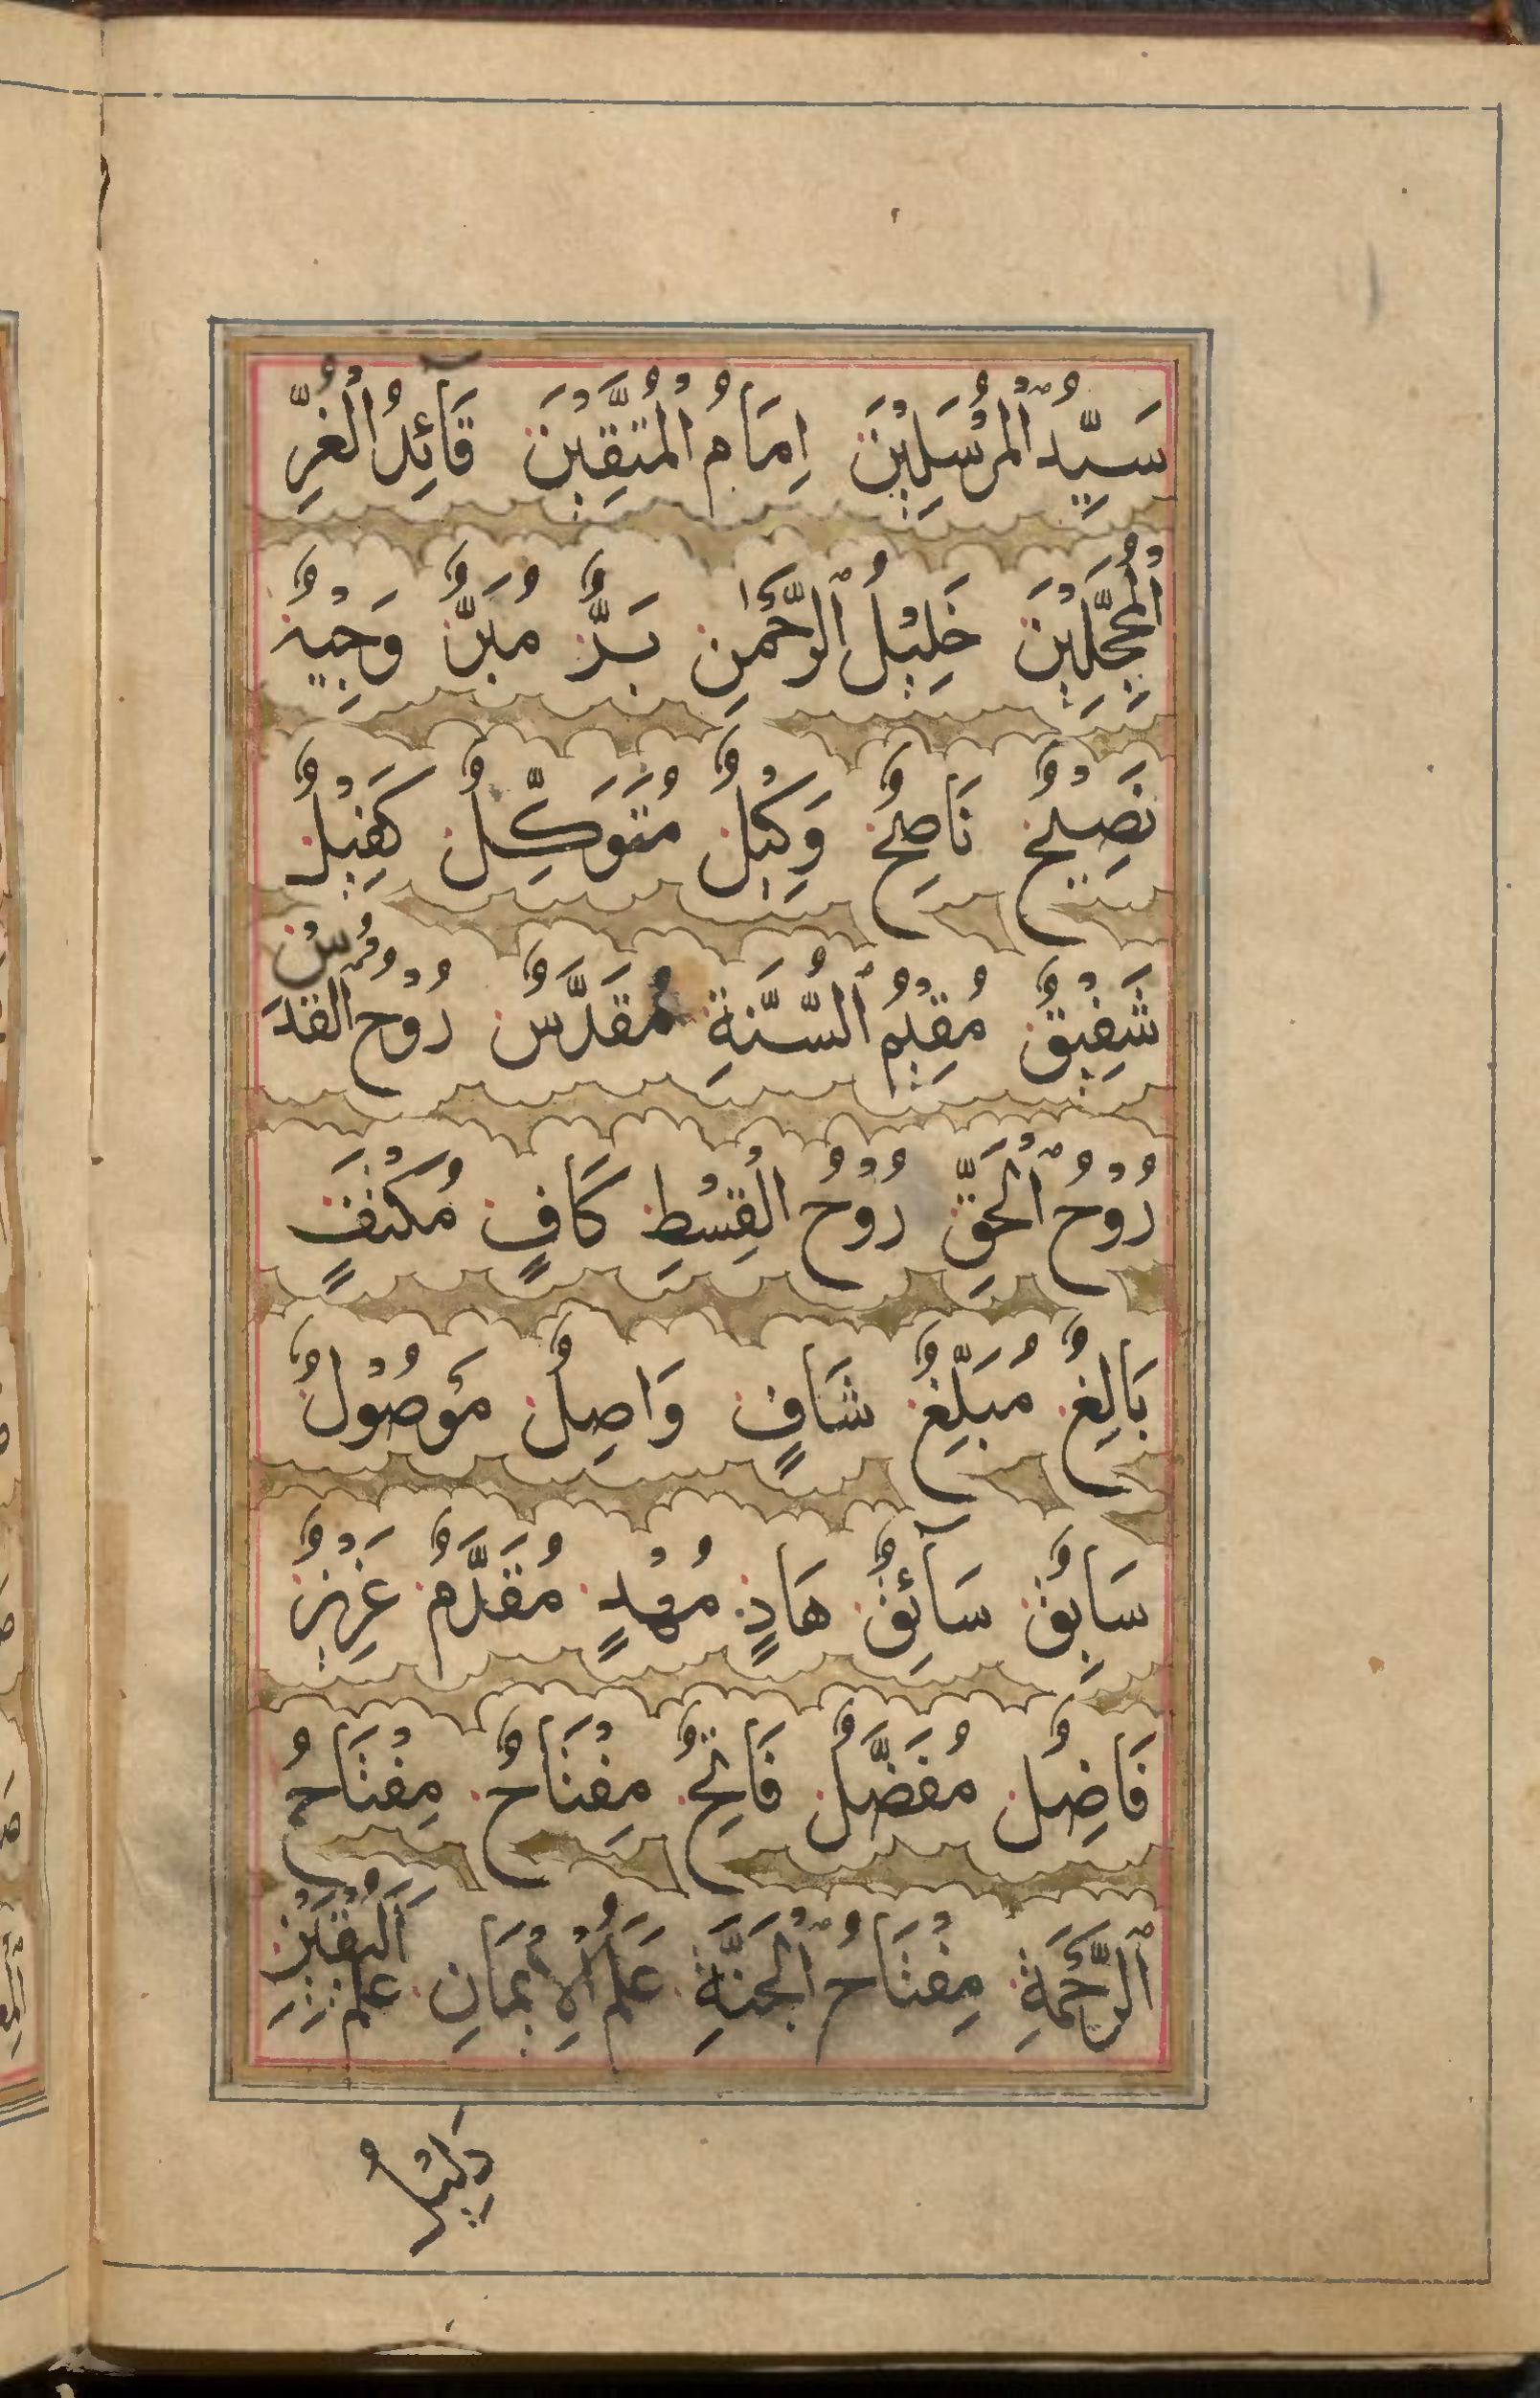 سَيِّدُ ٱلْمُرْسَلِيْنَ اِمَامُ الْمُتَّقِيْنَ قَائِدُ الْغُرِّ
الْمُحَجَّلِيْنَ خَلِيْلُ ٱلرَّحْمٰنِ بَرٌّ مُبَرٌّ وَجِيْهٌ
نَصِيْحٌ نَاصِحٌ وَكِيْلٌ مُتَوَكِّلٌ كَفِيْلٌ
شَفِيْقٌ مُقِيْمُ ٱلسُّنَّةِ مُقَدَّسٌ رُوْحُ ٱلْقُدُسِ
رُوْحُ ٱلْحَقِّ رُوْحُ الْقِسْطِ كَافٍ مُكْتَفٍ
بَالِغٌ مُبَلِّغٌ شَافٍ وَاصِلٌ مَوْصُوْلٌ
سَابِقٌ سَآئِقٌ هَادٍ مُهْدٍ مُقَدَّمٌ عَزِيْزٌ
فَاضِلٌ مُفَضَّلٌ فَاتِحٌ مِفْتَاحٌ مِفْتَاحُ
ٱلرَّحْمَةِ مِفْتَاحُ ٱلْجَنَّةِ عَلَمُ الْاِيْمَانِ عَلَمُ الْيَقِيْنِ
دَلِيْلُ